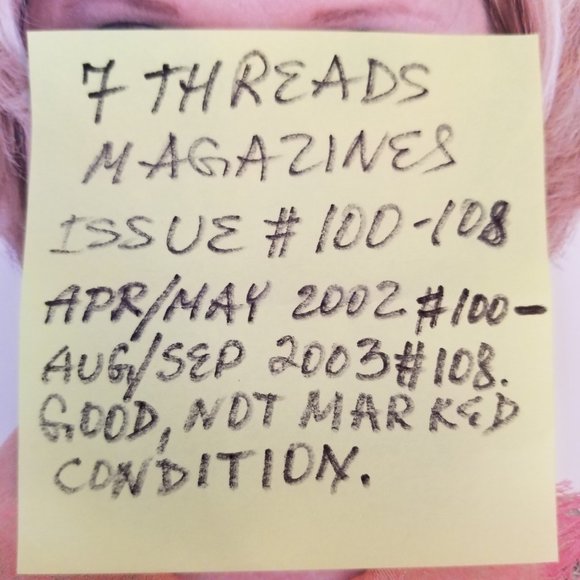 7 THREADS
MAGAZINES
ISSUE # 100-108
APR/MAY 2002 #100-
AUG/SEP 2003 #108.
GOOD, NOT MARKED
CONDITION.